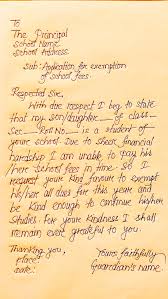 To
The Principal
School Name
School Address
Sub: Application for exemption
of school fees.
Respected Sir,
With due respect I beg to state
that my son/daughter of class
Sec Roll No is a student of
your school. Due to sheer financial
hardship I am unable to pay his
/here school fees in time. So I
request your kind favour to exempt
his/her all dues for this year and
be kind enough to continue his/her
studies. For your kindness I shall
remain ever grateful to you.
Thanking you,
Place
Date:
Yours faithfully
Guardian's name